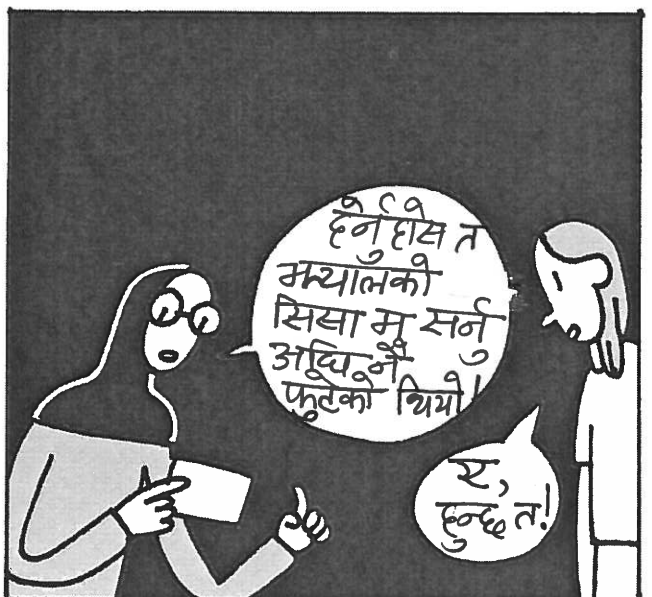 हेर्नुहोस त
झ्यालको
सिसा म सर्नु
अघि नै
फुटेको थियो!
ए,
हुन्छ त!